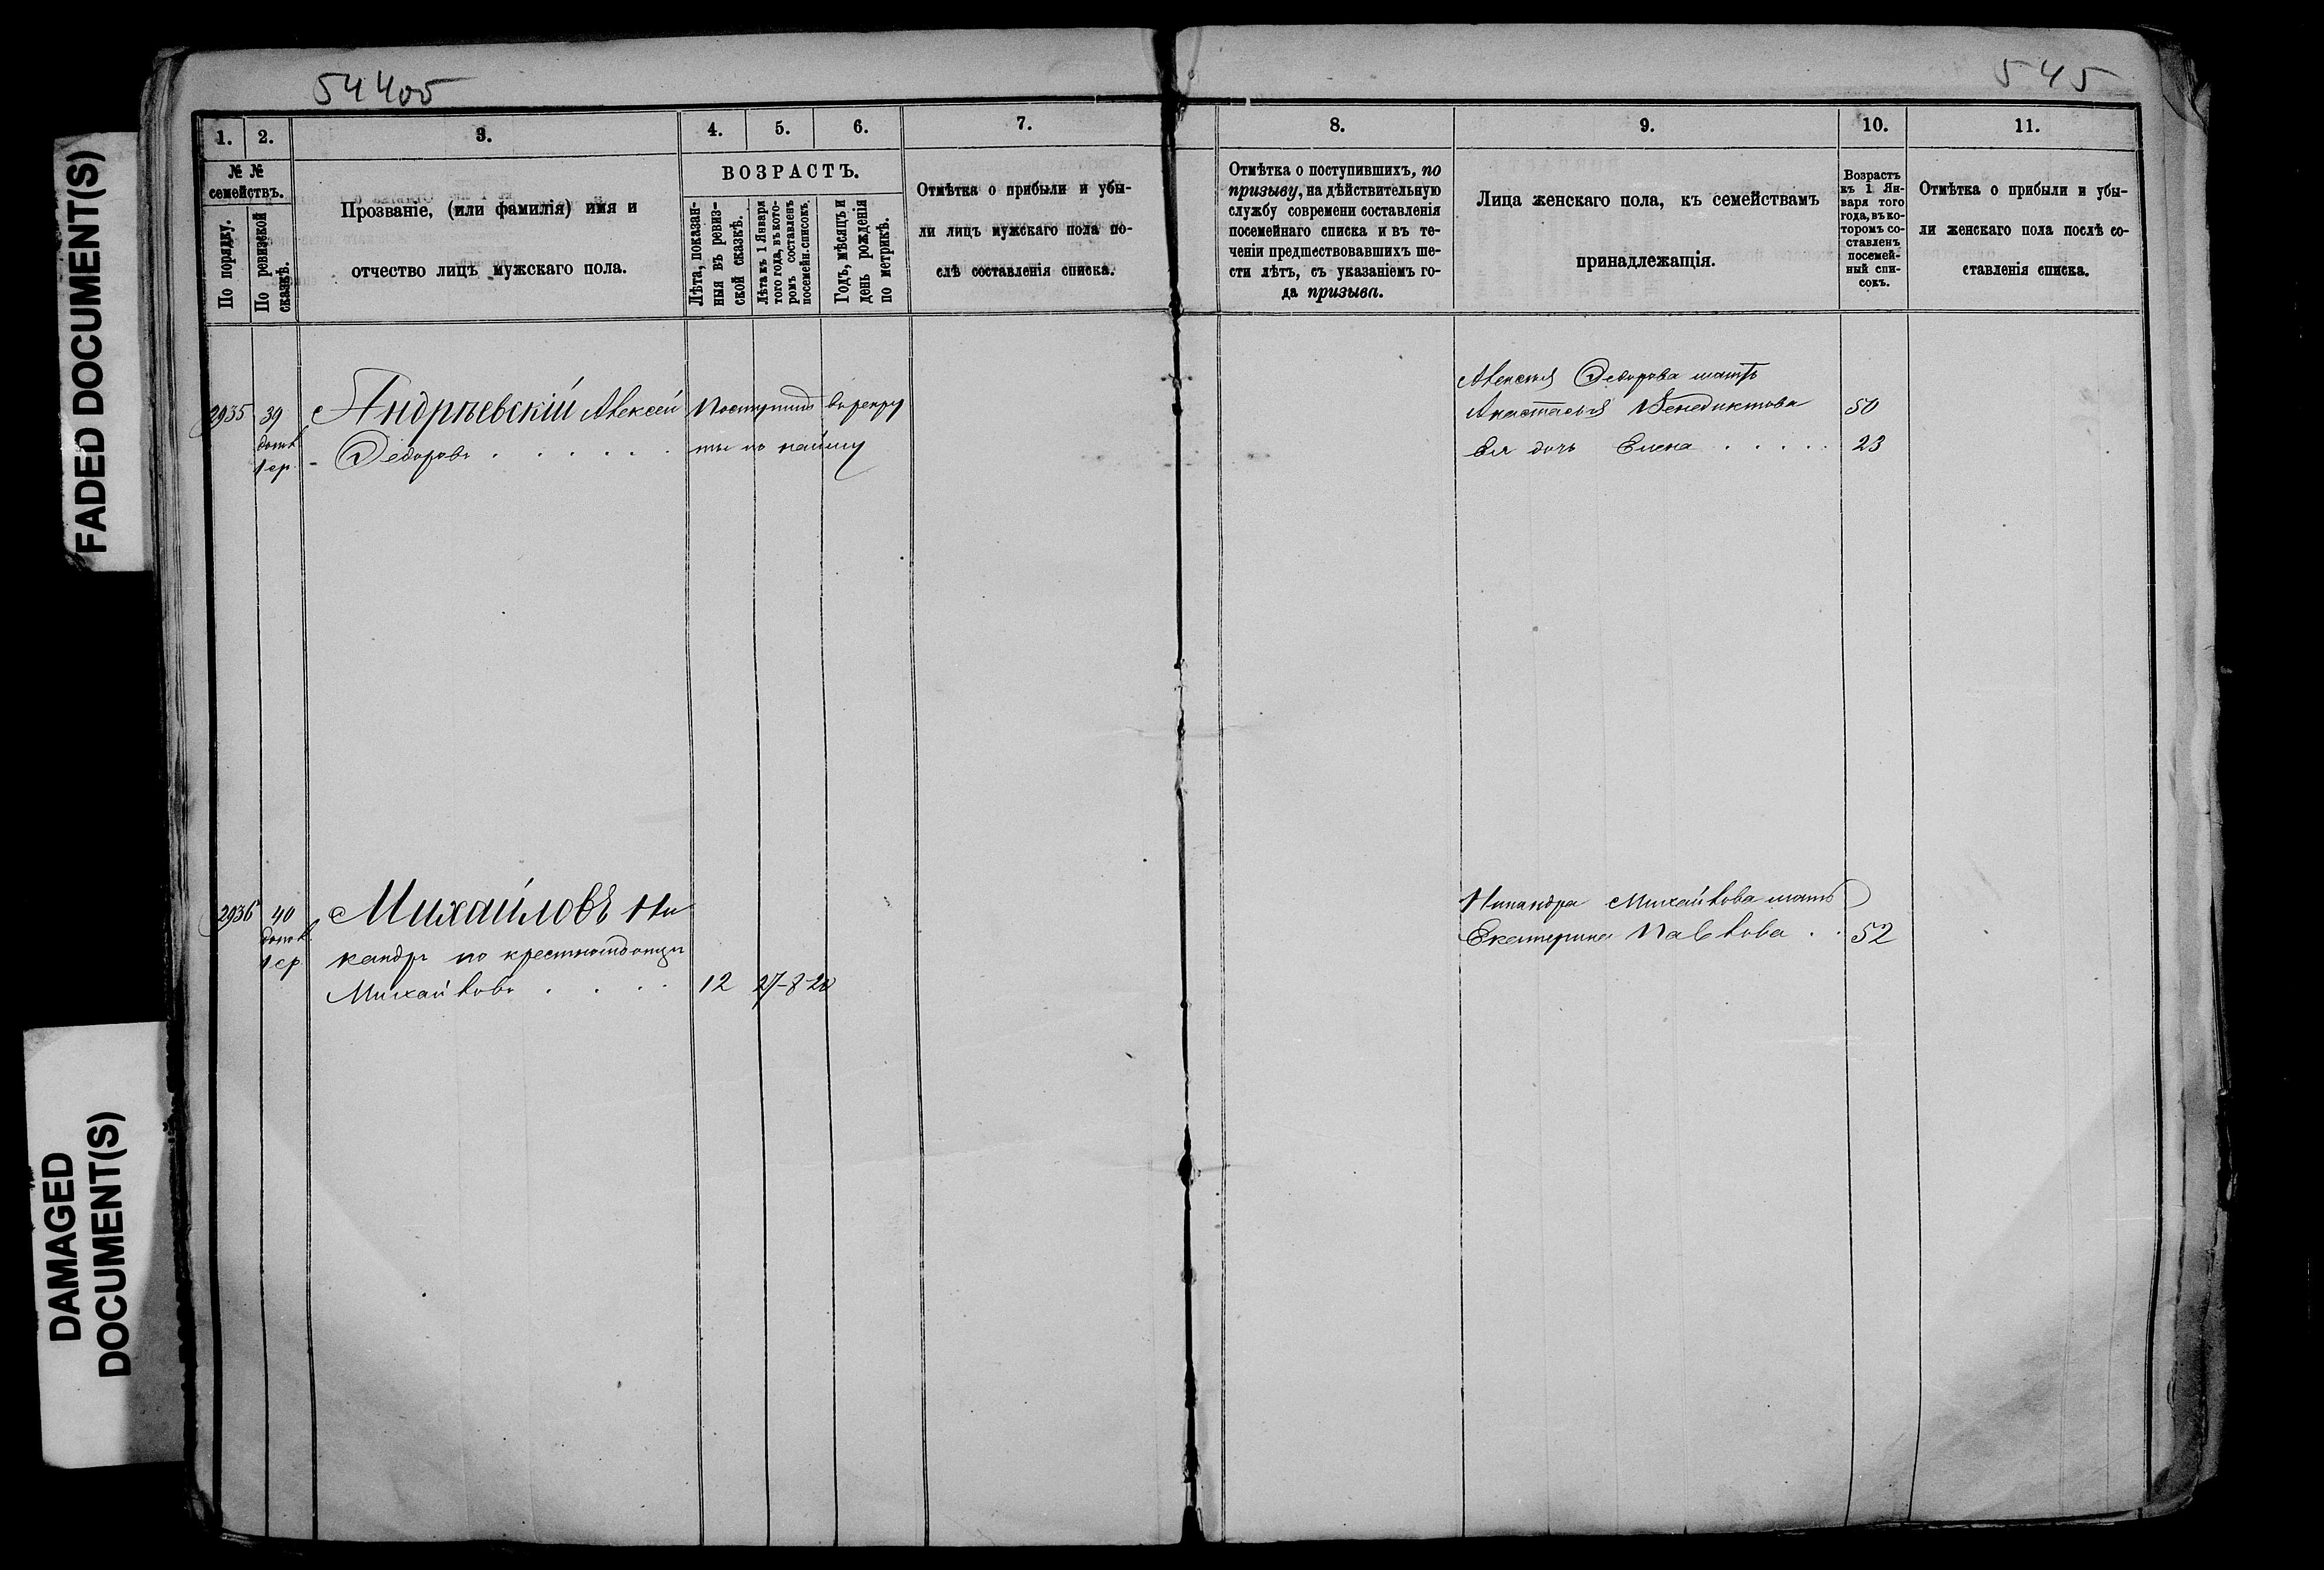 FADED DOCUMENT(S)
DAMAGED
DOCUMENT(S)
544об
545
1. 2. 3. 4. 5. 6. 7. 8. 9. 10. 11.
№ №
семействъ.
По порядку.
По ревизской
сказкѣ.
Прозваніе, (или фамилія) имя и
отчество лицъ мужскаго пола.
ВОЗРАСТЪ.
Лѣта, показан-
ныя въ ревиз-
ской сказкѣ.
Лѣта къ 1 Января
того года, въ кото-
ромъ составленъ
посемейн. списокъ.
Годъ, мѣсяцъ и
день рожденія
по метрикѣ.
Отмѣтка о прибыли и убы-
ли лицъ мужскаго пола по-
слѣ составленія списка.
Отмѣтка о поступившихъ, по
призыву, на дѣйствительную
службу современи составленія
посемейнаго списка и въ те-
ченіи предшествовавшихъ ше-
сти лѣтъ, съ указаніемъ го-
да призыва.
Лица женскаго пола, къ семействамъ
принадлежащія.
Возрастъ
къ 1 Ян-
варя того
года, въ ко-
торомъ со-
ставленъ
посемей-
ный спи-
сокъ.
Отмѣтка о прибыли и убы-
ли женскаго пола послѣ со-
ставленія списка.
2935 39 Андрѣевскій Алексѣй Поступилъ въ рекру
допол.
1 ср. Ѳедоровъ ты по найму
Алексѣя Ѳедорова мать
Анастасья Венедиктова 50
Ея дочь Елена 23
2936 40 Михайловъ Ни
допол.
1 ср. кандръ по крестному отцу
Михайловъ 12 27-8-20
Никандра Михайлова мать
Екатерина Павлова 52